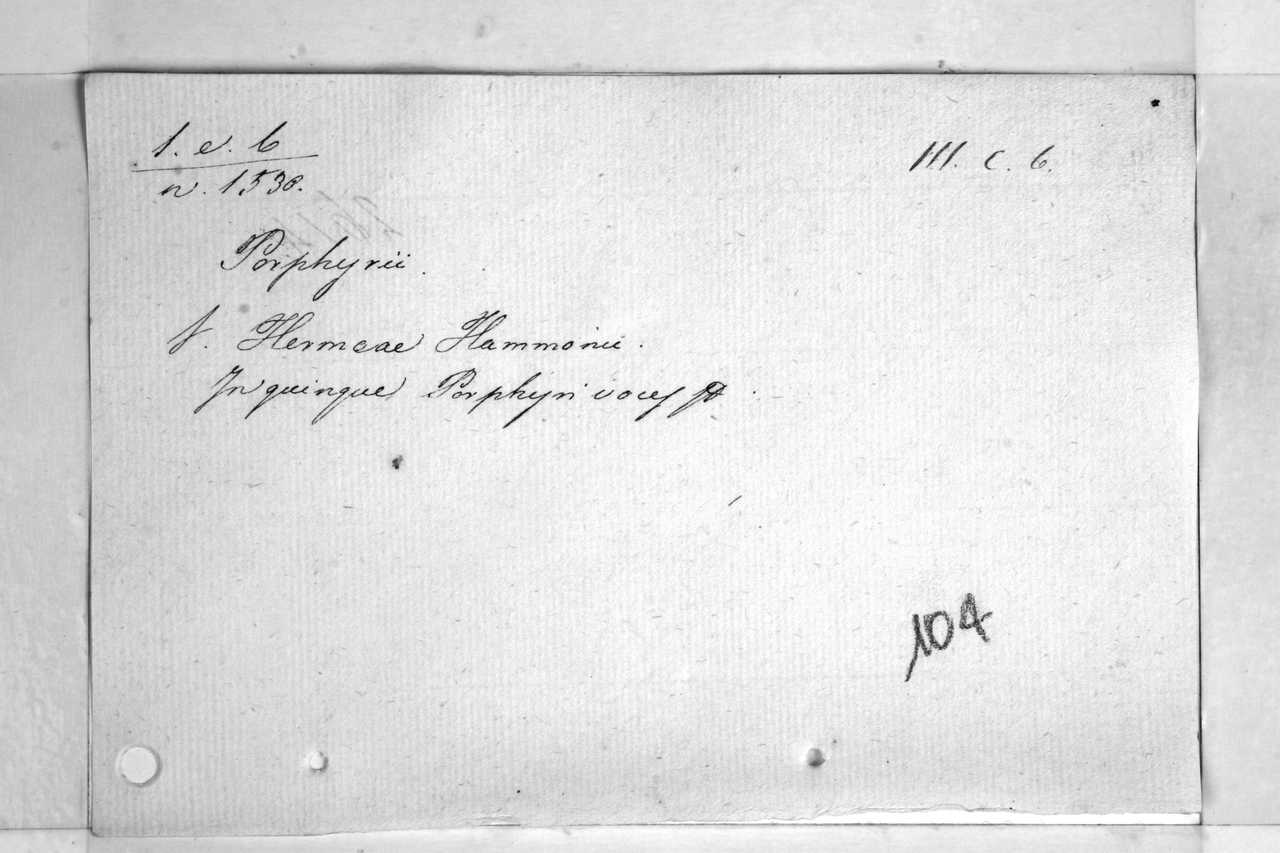 1. e. 6
III. c. 6.
n. 1538.
Porphyrii.
v. Hermeae Hammonii.
In quinque Porphyri voces
104